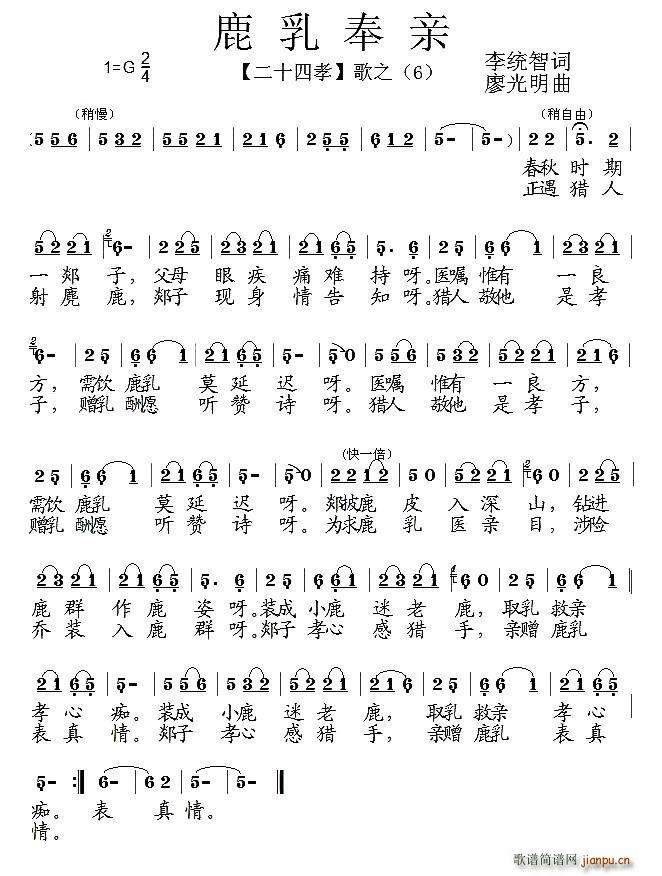 鹿乳奉亲
1=G 2/4 【二十四孝】歌之（6） 李统智词
廖光明曲
（稍慢） （稍自由）
(5 5 6 | 5 3 2 | 5 5 2 1 | 2 1 6 | 2 1 2 5 | 5 - | 5 - ) | 2 2 | 5 . 2 |
春秋 时 期
正遇 猎 人
5 2 2 1 | 6 - | 2 2 5 | 2 3 2 1 | 2 1 6 5 | 5 . 6 | 2 5 | 5 5 2 1 | 2 0 2 1 |
一 郯 子，父母 眼 疾 痛 难 持 呀。医嘱 惟有 一 良
射 麂 鹿，郯子 现 身 情 告 知 呀。猎人 敬他 是 孝
6 - | 2 5 | 6 6 1 | 2 1 6 5 | 5 - | 5 0 | 5 5 6 | 5 3 2 | 5 5 2 1 | 2 1 6 |
方，需饮 鹿乳 莫 延 迟 呀。医嘱 惟有 一 良 方，
子，赠乳 酬愿 听 赞 诗 呀。猎人 敬他 是 孝 子，
（快一倍）
2 5 | 6 6 1 | 2 1 6 5 | 5 - | 5 0 | 2 2 1 2 | 5 0 | 5 2 2 1 | 6 0 | 2 5 |
需饮 鹿乳 莫 延 迟 呀。郯披鹿 皮 入 深 山，钻进
赠乳 酬愿 听 赞 诗 呀。为求鹿 乳 医 亲 目，涉险
2 3 2 1 | 2 1 6 5 | 5 . 6 | 2 5 | 6 6 1 | 2 3 2 1 | 6 0 | 2 5 | 1 2 |
鹿 群 作 鹿 姿 呀。装成 小鹿 迷 老 鹿，取乳 救亲
乔 装 入 鹿 群 呀。郯子 孝心 感 猎 手，亲赠 鹿乳
2 1 6 5 | 5 - | 5 5 6 | 5 3 2 | 5 5 2 1 | 2 1 6 | 2 5 | 1 2 | 2 1 6 5 |
孝 心 痴。装成 小鹿 迷 老 鹿，取乳 救亲 孝 心
表 真 情。郯子 孝心 感 猎 手，亲赠 鹿乳 表 真
5 - :| 6 - | 6 2 | 5 - | 5 - ||
痴。 表 真 情。
情。
歌谱简谱网
jianpu.cn